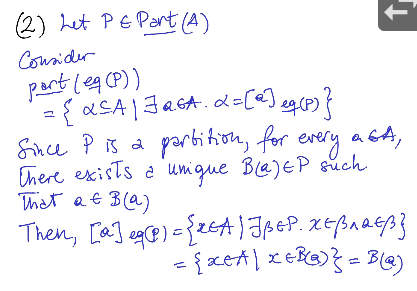 (2) Let P ∈ Part(A)
Consider
part(eq(P))
= { α ⊆ A | ∃ a ∈ A. α = [a] eq(P) }
Since P is a partition, for every a ∈ A,
there exists a unique B(a) ∈ P such
that a ∈ B(a)
Then, [a] eq(P) = { x ∈ A | ∃ β ∈ P. x ∈ β ∧ a ∈ β }
= { x ∈ A | x ∈ B(a) } = B(a)